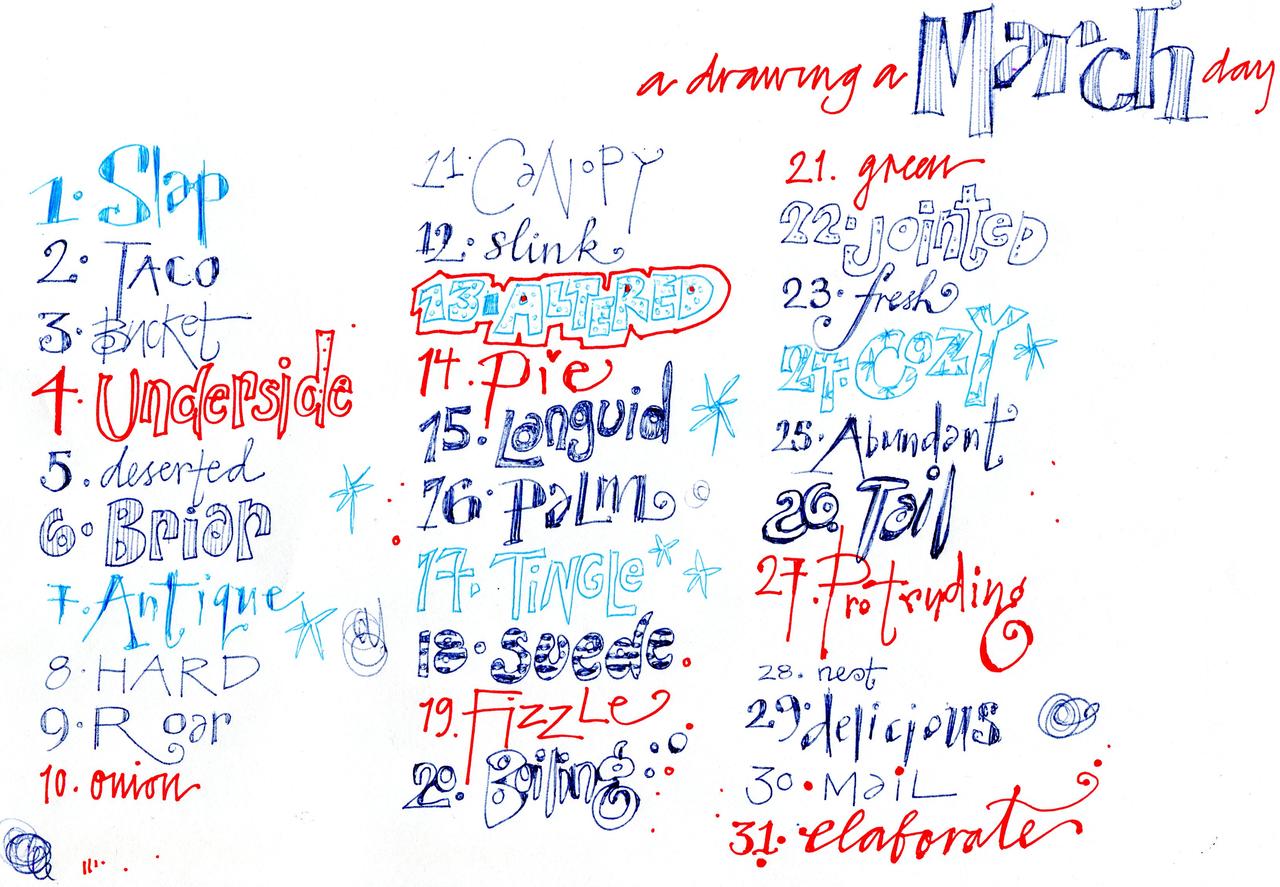 a drawing a March day
1. Slap
2. TACO
3. Bucket
4. Underside
5. deserted
6. Briar
7. Antique
8. HARD
9. Roar
10. onion
11. CANOPY
12. slink
13. ALTERED
14. Pie
15. Languid
16. PALM
17. TINGLE
18. Suede
19. FizzLe
20. Boiling
21. green
22. JOINTED
23. fresh
24. COZY
25. Abundant
26. Tail
27. Protruding
28. nest
29. delicious
30. MaiL
31. elaborate